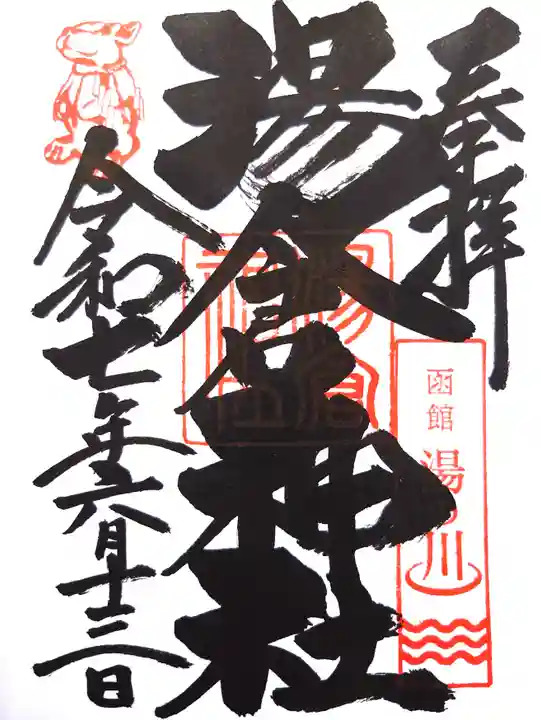 奉拝
函館
湯の川
湯倉神社
湯倉神社
令和七年六月十三日